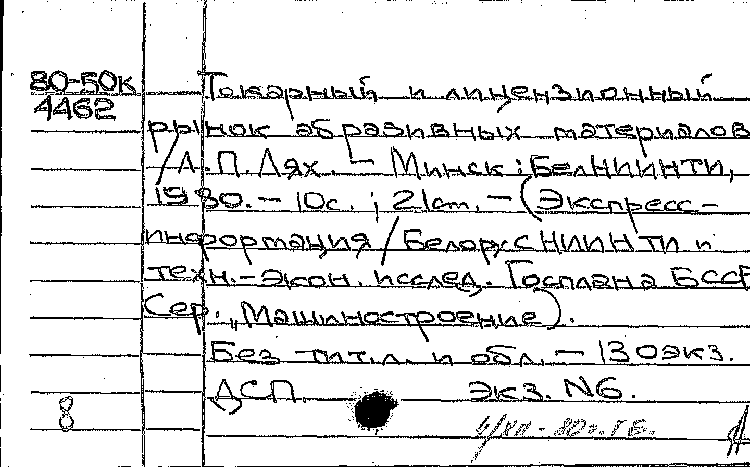 80-50к
4462
Токарный и лицензионный
рынок абразивных материалов
/Л.П.Лях. — Минск : БелНИИНТИ,
1980. — 10с. ; 21см. — (Экспресс-
информация / БелорусНИИНТИ и
техн.-экон. исслед. Госплана БССР
Сер. „Машиностроение).
Без тит.л. и обл. — 130экз.
ДСП. экз. N6.
8